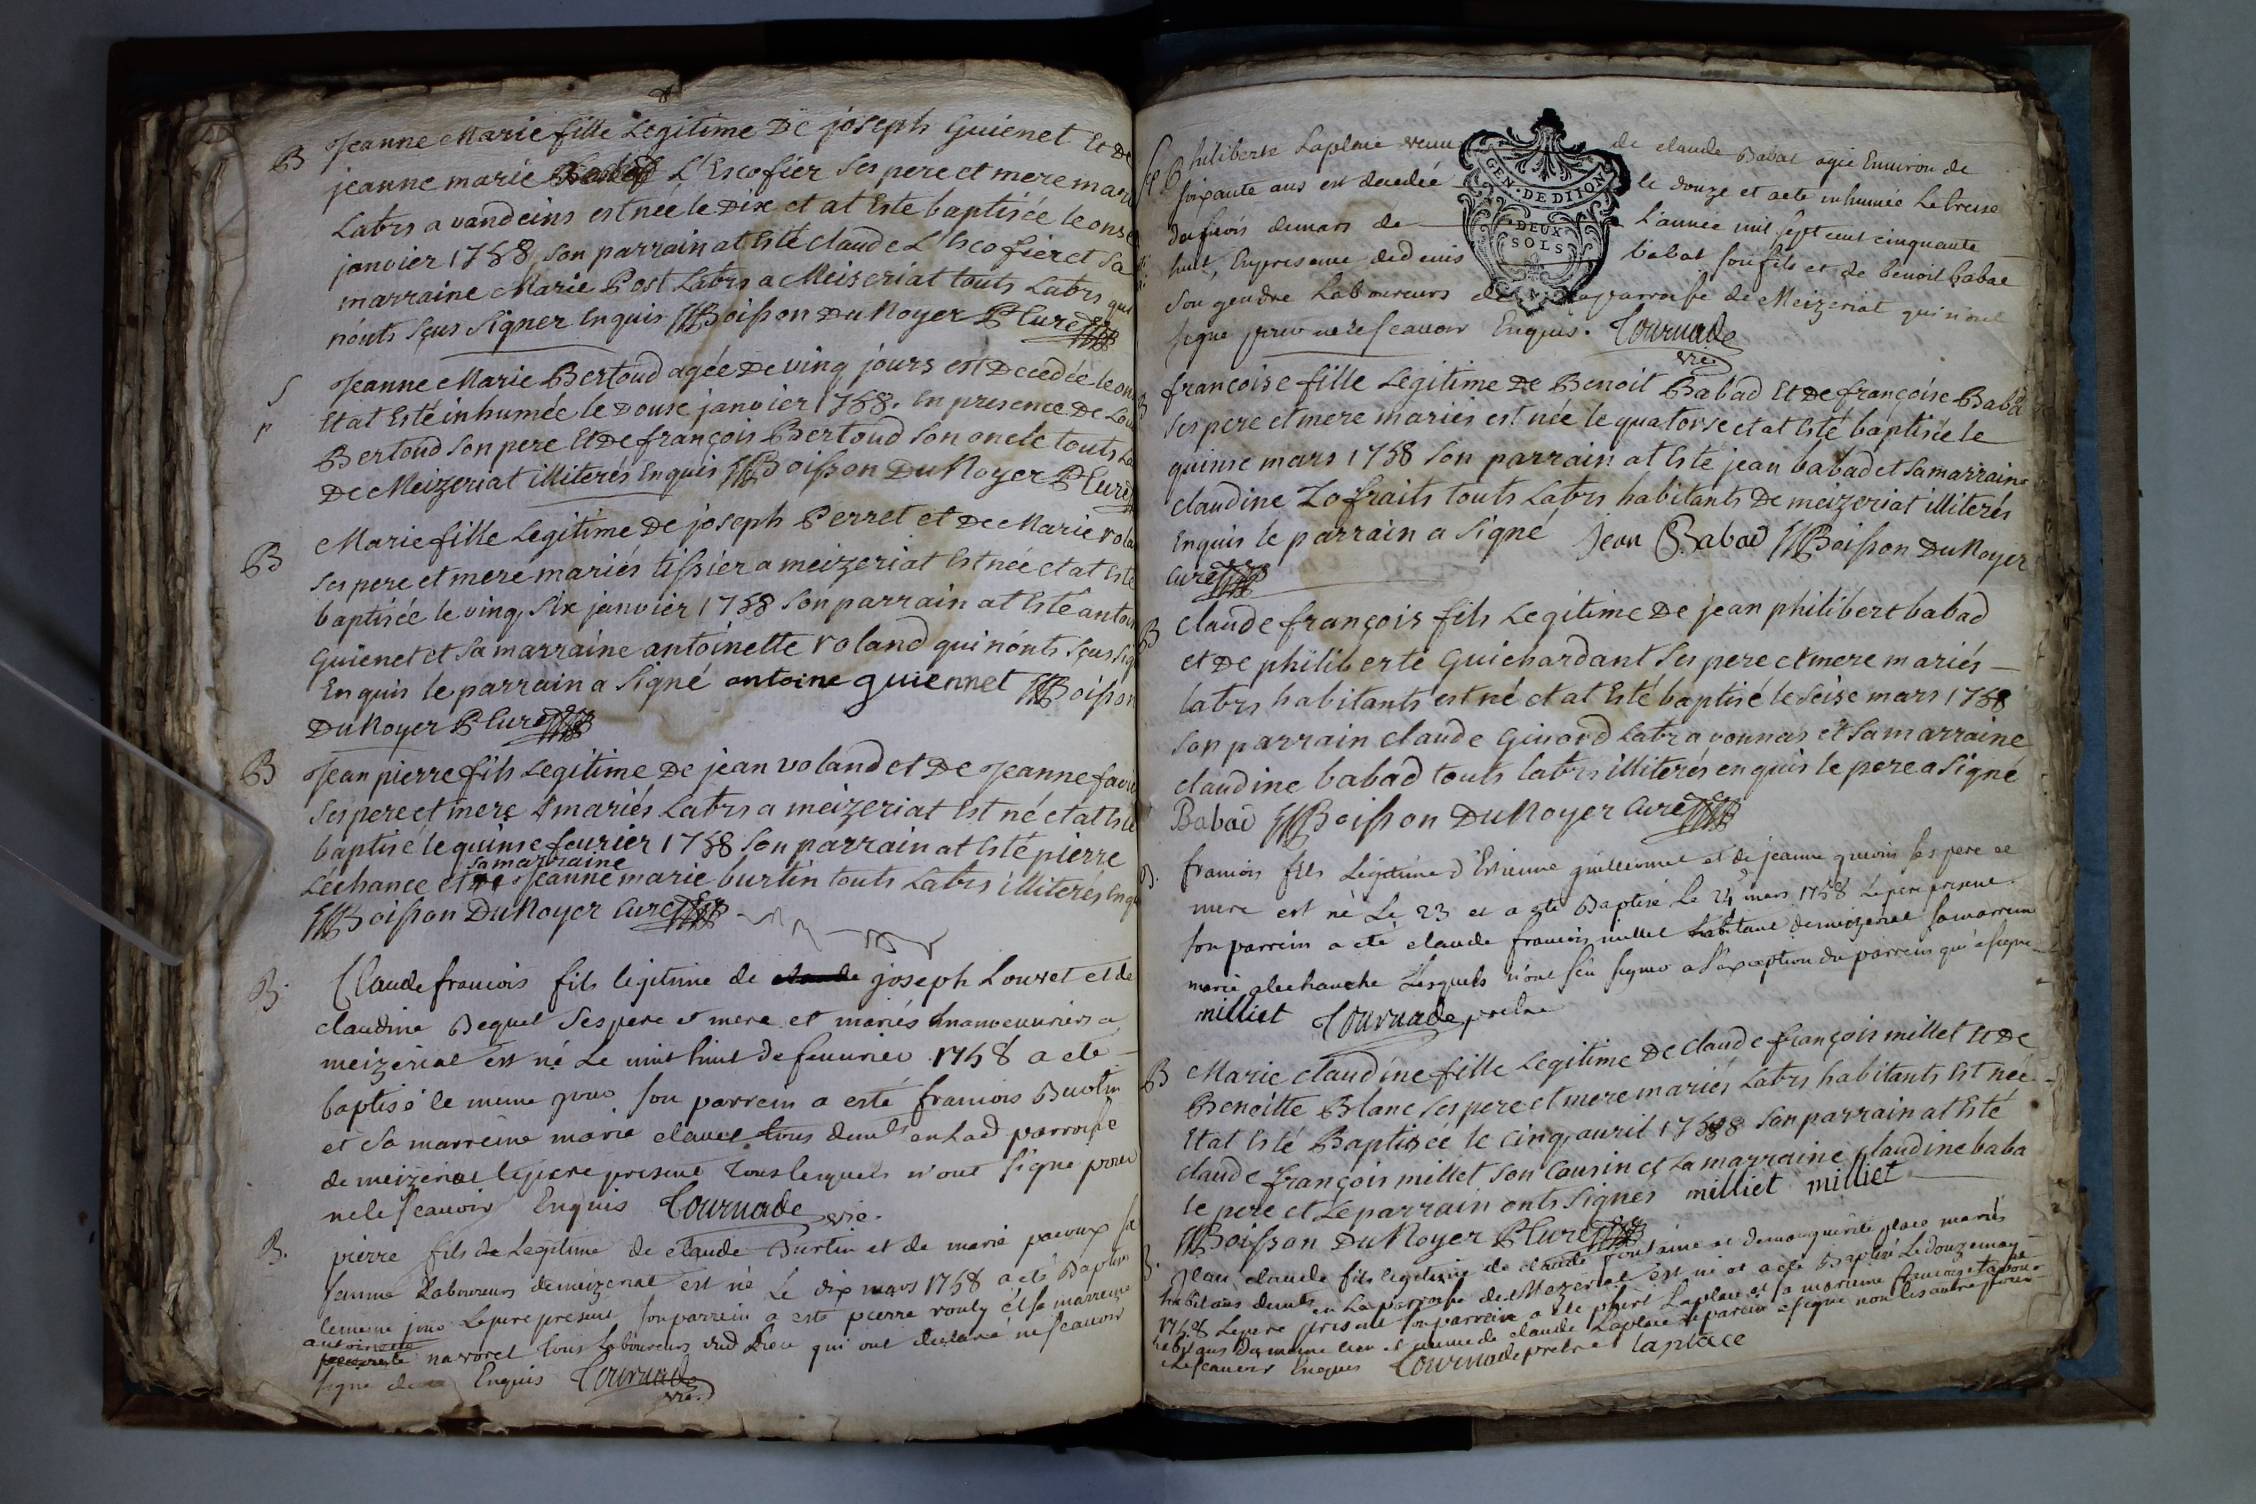 B Jeanne Marie fille Legitime De joseph Guienet Et De
jeanne marie L'Escofier Ses pere et mere mariés
Labrs a vandeins est née le Dix et at Esté baptisée le onse
janvier 1758 son parrain at Esté Claude L'Escofier et Sa
marraine Marie Post Labrs a Meiseriat touts Labrs qui
nónts Sçus Signer Enquis Boisson Du Noyer P Curé
S Jeanne Marie Bertoud agée De vinq jours est Decedée le
r Et at Esté inhumée le Douse janvier 1758. En presence De
Bertoud Son pere Et De françois Bertoud Son oncle touts
De Meizeriat illiterés Enquis Boisson Du Noyer P Curé
B Marie fille Legitime De joseph Perret et De Marie
Ses pere et mere mariés tissier a meizeriat Est née et at Esté
baptisée le vinq Six janvier 1758 Son parrain at Esté
Guienet et Sa marraine antoinette roland qui nónts Sçus
Enquis le parrain a Signé antoine guiennet Boisson
Du Noyer P Curé
B Jean pierre fils Legitime De jean voland et De Jeanne
Ses pere et mere mariés Labrs a meizeriat Est né et at Esté
baptisé le quinse feurier 1758 Son parrain at Esté pierre
Samarraine
Léchance et Jeanne marie burtin touts Labrs illiterés
Boisson Du Noyer Curé
B. Claude francois fils legitime de claude joseph Louvet et de
claudine Bequet Ses pere et mere et mariés manouvriers a
meizeriat est né Le huit de feuvrier 1758 a eté
baptisé le meme jour Son parrein a esté francois Burtin
et Sa marreine marie clavel tous deux en Lad parroisse
de meizeriat le pere present tous lesquels n'ont Signé pour
ne le Scavoir Enquis Tournade vic.
B. pierre fils Legitime de claude Burtin et de marie
femme Laboureurs de meizeriat est né Le dix mars 1758 a eté Baptisé
le meme jour Le pere present Son parrein a esté pierre et Sa marreine
antoinette
navoret tous Laboureurs dud Lieu qui ont declaré ne Scavoir
Signe Enquis Tournade
vic.
philiberte Laplace de claude Babat agée Environ de
GEN. DE DIJON
DEUX
SOLS
soixante ans est decedée le douze et a eté inhumée Le treise
du mois de mars de L'année mil sept cent cinquante
huit, En presence de denis babat son fils et de benoit babat
Son gendre Laboureurs de La parroisse de Meizeriat qui n'ont
Signe pour ne le Scavoir Enquis. Tournade
vic.
B francoise fille Legitime De Benoit Babad Et De françoise Babad
Ses pere et mere mariés est née le quatorse et at Esté baptisée le
quinse mars 1758 Son parrain at Esté jean babad et Sa marraine
claudine touts Labrs habitants De meizeriat illiterés
Enquis le parrain a Signé Jean Babad Boisson Du Noyer
Curé
B claude françois fils Legitime De jean philibert babad
et De philiberte Guichardant Ses pere et mere mariés
Labrs habitants est né et at Esté baptisé le Seise mars 1758
Son parrain claude Labr a vonnas et Sa marraine
claudine babad touts labrs illiterés enquis le pere a Signé
Babad Boisson Du Noyer Curé
B. francois fils Legitime d'Etienne guillermet et de jeanne Ses pere et
mere est né Le 23 et a eté Baptisé Le 24 mars 1758 Le pere present.
Son parrein a eté claude francois millet habitant de meizeriat Sa marreine
marie Lesquels n'ont Sçu Signer a l'exception du parrein qui a Signé
milliet Tournade pretre
B Marie claudine fille Legitime De claude françois millet Et De
Benoitte Blanc Ses pere et mere mariés Labrs habitants Est née
Et at Esté Baptisée le cinq auril 1758 Son parrain at Esté
claude françois millet Son Cousin et Sa marraine claudine baba
le pere et Le parrain onts Signés milliet milliet
Boisson Du Noyer P Curé
B. Jean claude fils legitime de claude fontaine et de marguerite place mariés
habitans en La parroisse de Mezeriat est né et a eté Baptisé Le douze may
1758 Le pere present Son parrein a eté Laplace et Sa marreine
du meme lieu et femme de claude Laplace le parein a Signe non les autre pour
ne le Scavoir Enquis Tournade pretre laplace